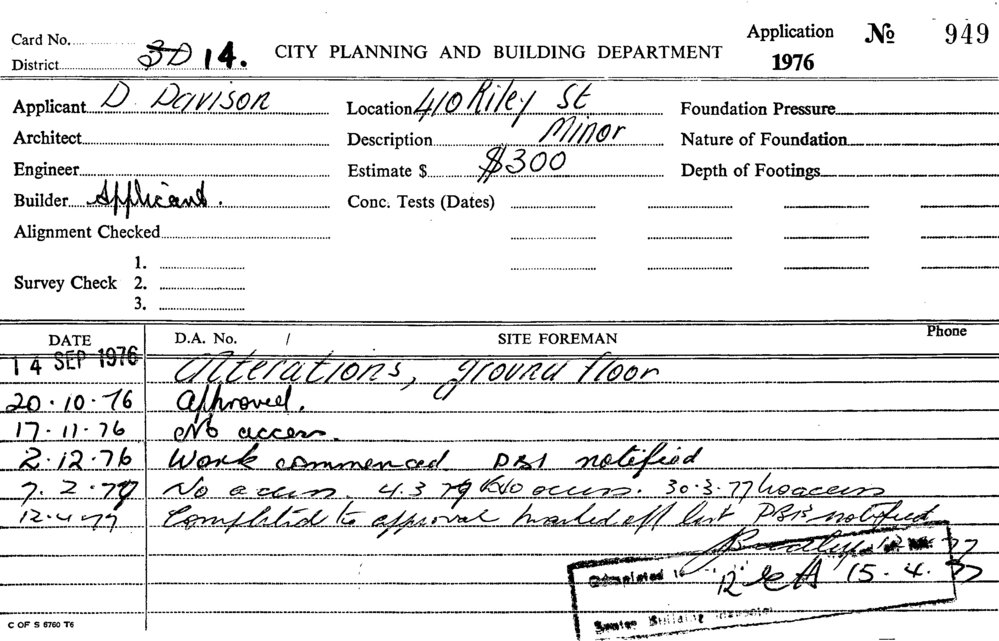 Card No.
District 3D 14.
CITY PLANNING AND BUILDING DEPARTMENT
Application No 949
1976
Applicant D. Davison
Location 410 Riley St
Foundation Pressure
Architect
Description Minor
Nature of Foundation
Engineer
Estimate $ $300
Depth of Footings
Builder Applicant.
Conc. Tests (Dates)
Alignment Checked
Survey Check 1.
2.
3.
DATE D.A. No. / SITE FOREMAN Phone
14 SEP 1976 Alterations, ground floor
20.10.76 Approved.
17.11.76 No access.
2.12.76 Work commenced DBI notified
7.2.77 No access. 4.3.77 No access. 30.3.77 No access
12.4.77 Completed to approval marked off list DBI notified
Completed to
15.4.77
Senior Building Inspector
C OF S 6760 T6